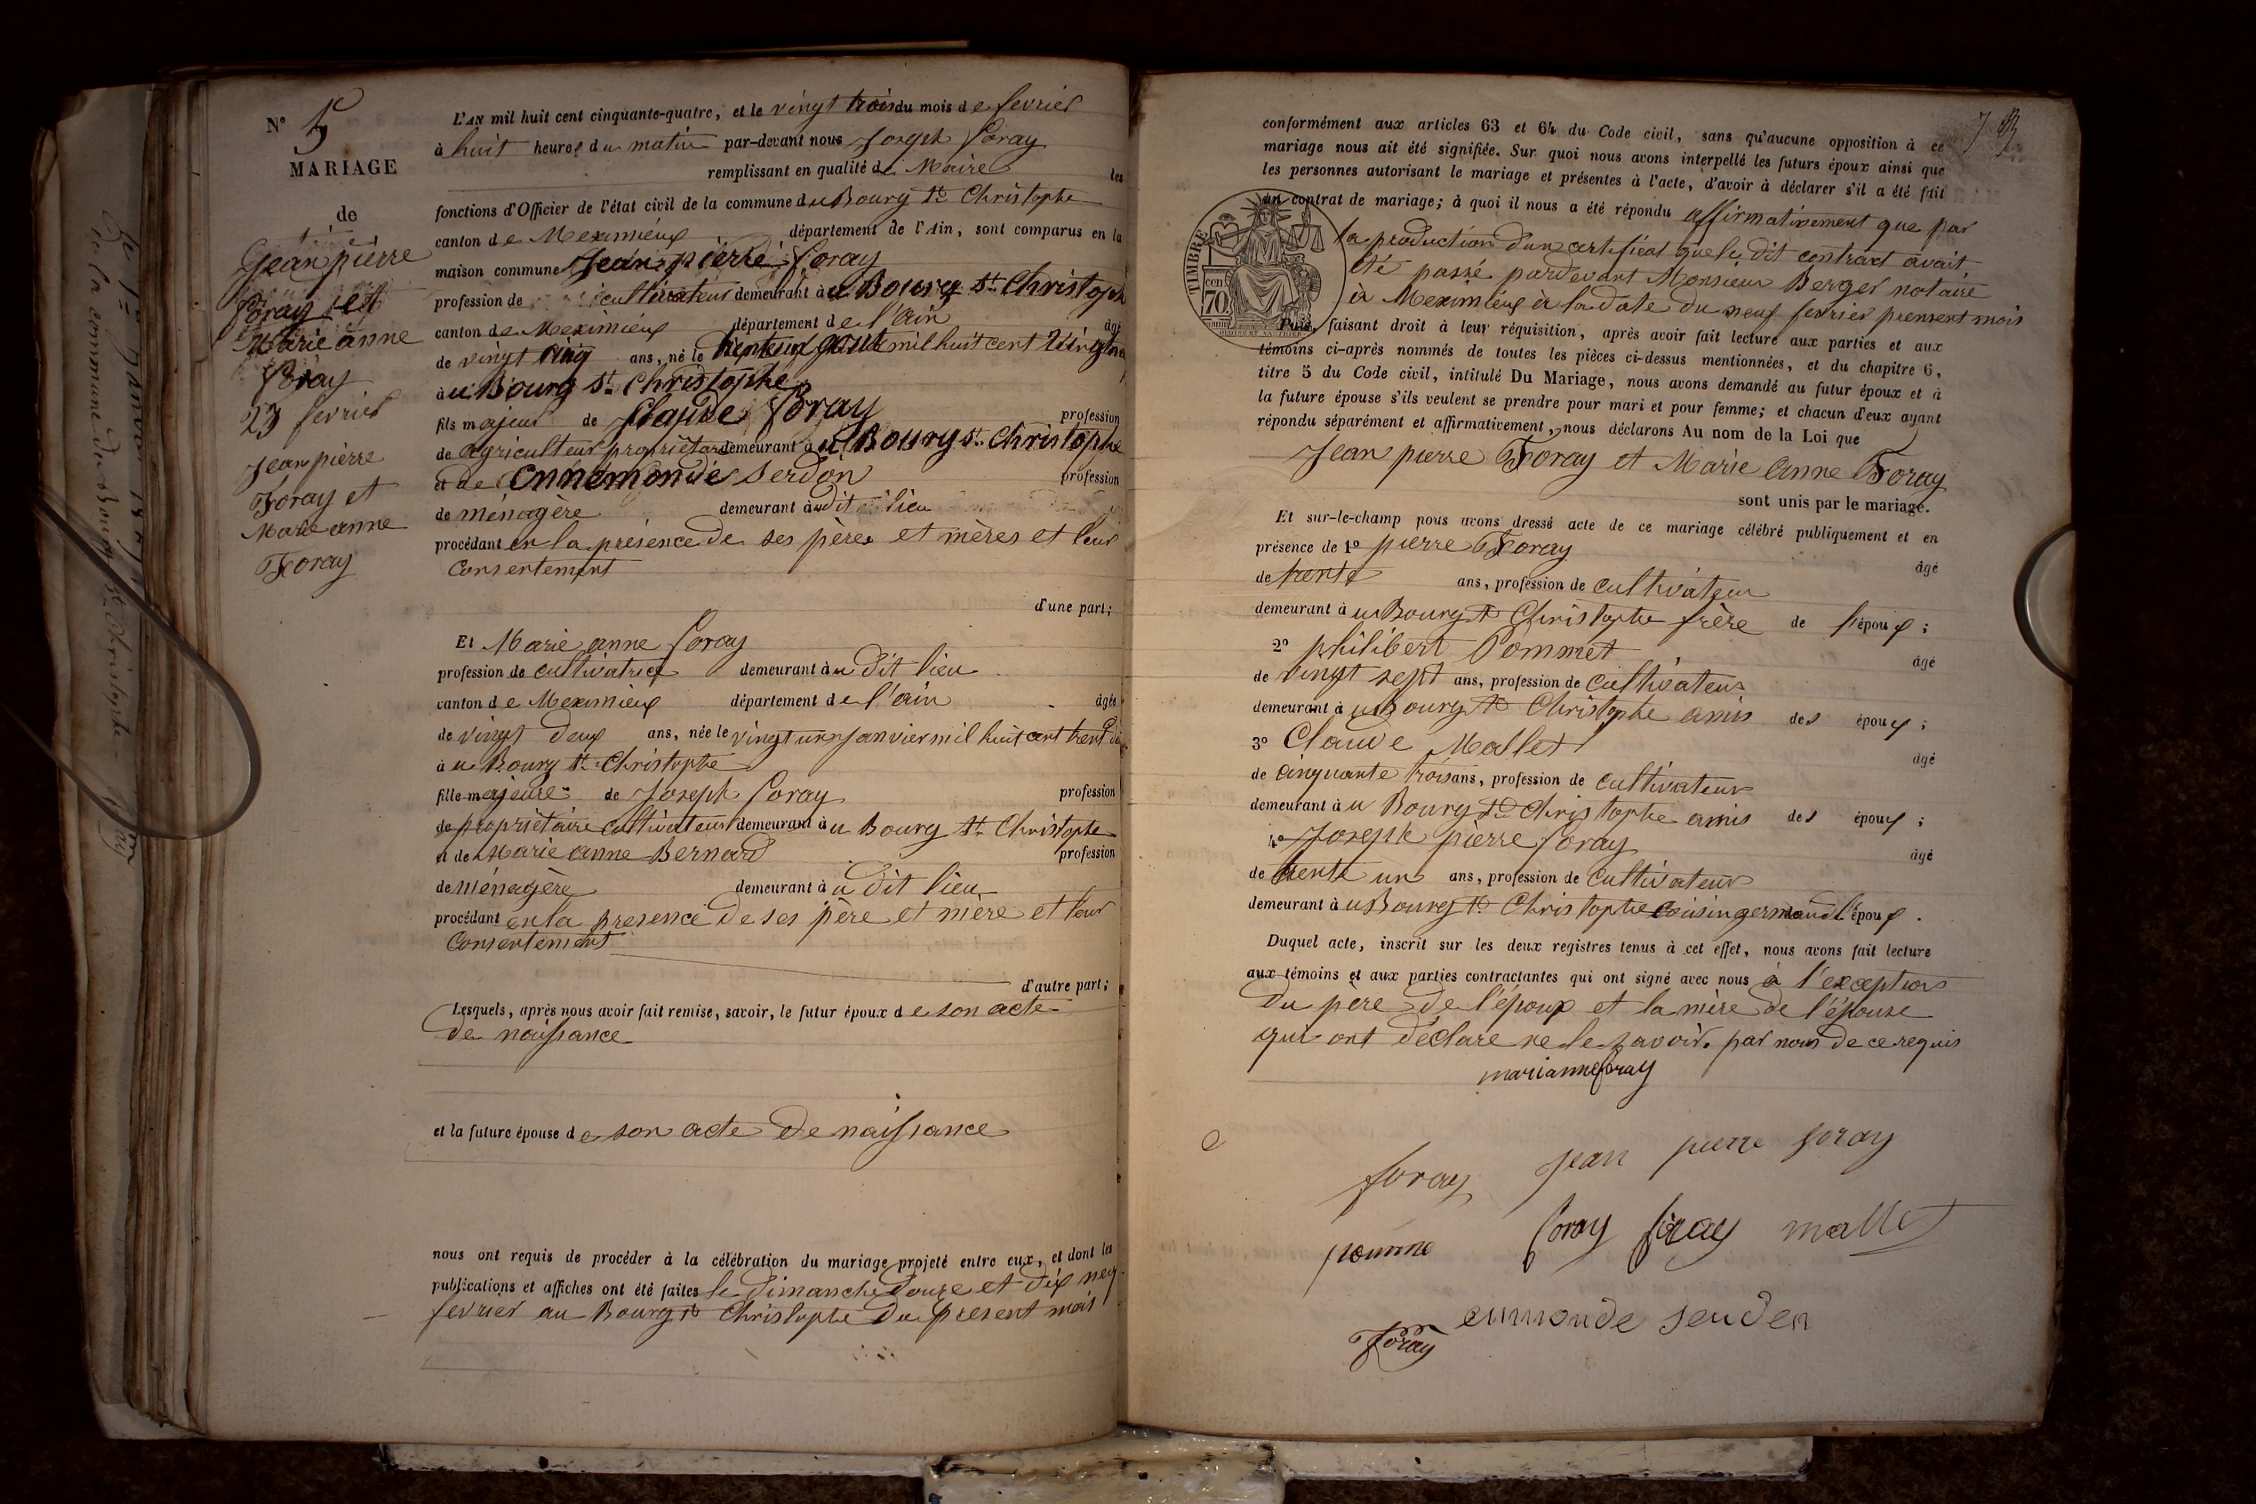 N° 5
MARIAGE
de
Jean pierre
Foray et
Marie anne
Foray
23 fevrier
Jean pierre
Foray et
Marie anne
Foray
L'AN mil huit cent cinquante-quatre, et le vingt trois du mois de fevrier
à huit heures du matin par-devant nous Joseph Foray
remplissant en qualité de Maire les
fonctions d'Officier de l'état civil de la commune du Bourg St Christophe
canton de Meximieux département de l'Ain, sont comparus en la
maison commune Jean pierre Foray
profession de cultivateur demeurant à u Bourg St Christophe
canton de Meximieux département de l'ain âgé
de vingt cinq ans, né le trente un mil huit cent vingt
à u Bourg St Christophe
fils majeur de Claude Foray profession
de agriculteur propriétaire demeurant à u Bourg St Christophe
et de Ennemonde Serdon profession
de ménagère demeurant à u dit lieu
procédant en la présence de ses pères et mères et leur
consentement
d'une part;
Et Marie anne Foray
profession de cultivatrice demeurant à u dit lieu
canton de Meximieux département de l'ain âgée
de vingt deux ans, née le vingt un Janvier mil huit cent trent deux
à u Bourg St Christophe
fille majeure de Joseph Foray profession
de propriétaire cultivateur demeurant à u Bourg St Christophe
et de Marie anne Bernard profession
de ménagère demeurant à u dit lieu
procédant en la presence de ses père et mère et leur
consentement
d'autre part;
Lesquels, après nous avoir fait remise, savoir, le futur époux de son acte
de naissance
et la future épouse de son acte de naissance
nous ont requis de procéder à la célébration du mariage projeté entre eux, et dont les
publications et affiches ont été faites le dimanche douze et dix neuf
fevrier au Bourg St Christophe du présent mois
conformément aux articles 63 et 64 du Code civil, sans qu'aucune opposition à ce
mariage nous ait été signifiée. Sur quoi nous avons interpellé les futurs époux ainsi que
les personnes autorisant le mariage et présentes à l'acte, d'avoir à déclarer s'il a été fait
un contrat de mariage; à quoi il nous a été répondu affirmativement que par
la production dun certificat que le dit contract avait
été passé pardevant Monsieur Berger notaire
à Meximieux à la date du neuf fevrier present mois
TIMBRE
70
Puis, faisant droit à leur réquisition, après avoir fait lecture aux parties et aux
témoins ci-après nommés de toutes les pièces ci-dessus mentionnées, et du chapitre 6,
titre 5 du Code civil, intitulé Du Mariage, nous avons demandé au futur époux et à
la future épouse s'ils veulent se prendre pour mari et pour femme; et chacun d'eux ayant
répondu séparément et affirmativement, nous déclarons Au nom de la Loi que
Jean pierre Foray et Marie anne Foray
sont unis par le mariage.
Et sur-le-champ nous avons dressé acte de ce mariage célébré publiquement et en
présence de 1° pierre Foray âgé
de trente ans, profession de cultivateur
demeurant à u Bourg St Christophe frère de l'époux;
2° philibert Pommet âgé
de vingt sept ans, profession de cultivateur
demeurant à u Bourg St Christophe amis des époux;
3° Claude Mallet âgé
de cinquante trois ans, profession de cultivateur
demeurant à u Bourg St Christophe amis des époux;
4° Joseph pierre Foray âgé
de trente un ans, profession de cultivateur
demeurant à u Bourg St Christophe cousin germain de l'époux.
Duquel acte, inscrit sur les deux registres tenus à cet effet, nous avons fait lecture
aux témoins et aux parties contractantes qui ont signé avec nous à l'exception
du père de l'époux et la mère de l'épouse
qui ont déclare ne le savoir. par nous de ce requis
marianne foray
foray Jean pierre foray
pomme foray foray mallet
enmonde serden
Foray